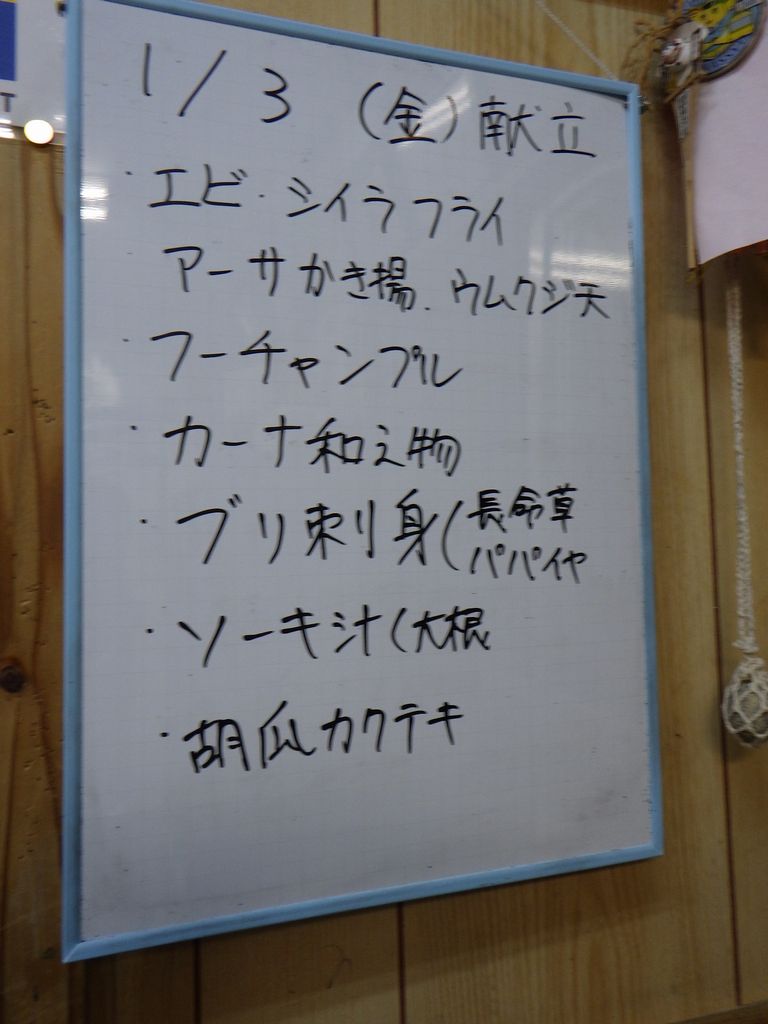 T
1/3 (金) 献立
・エビ・シイラフライ
アーサかき揚、ウムクジ天
・フーチャンプル
・カーナ和え物
・ブリ刺り身(長命草
パパイヤ
・ソーキ汁(大根
・胡瓜カクテキ